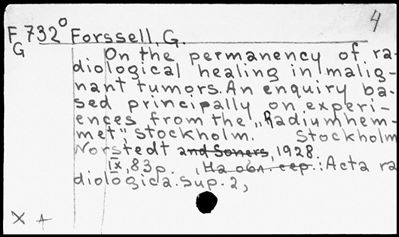 4
F 732⁰ Forssell, G.
G
On the permanency of ra-
diological healing in malig-
nant tumors. An enquiry ba-
sed principally on experi-
ences from the "Radiumhem-
met", Stockholm. Stockholm
Norstedt and Soners, 1928
IX, 83p. (На обл. сер.: Acta ra
diologica. Sup. 2,
X A